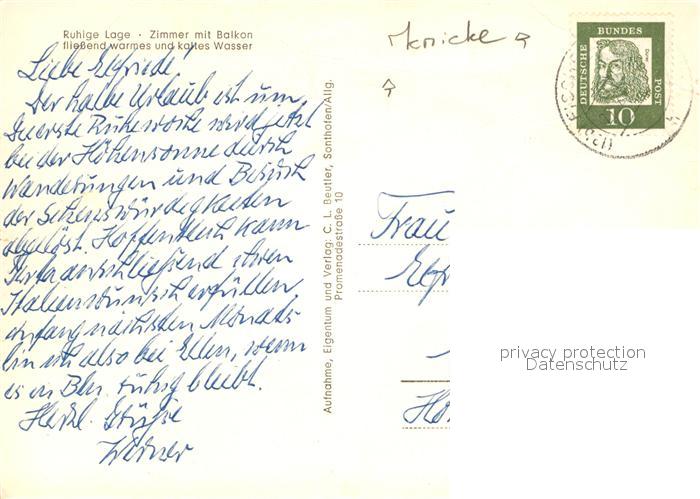 Ruhige Lage · Zimmer mit Balkon
fließend warmes und kaltes Wasser
Liebe Elfriede!
Der halbe Urlaub ist um.
Die erste Ruhewoche wird jetzt
bei der Höhensonne durch
Wanderungen und Besuch
der Sehenswürdigkeiten
abgelöst. Hoffentlich kann
anschließend ihren
Italienwunsch erfüllen.
Anfang nächsten Monats
bin ich also bei Ellen, wenn
es in Bln. ruhig bleibt.
Herzl. Grüße
Werner
Aufnahme, Eigentum und Verlag: C. L. Beutler, Sonthofen/Allg.
Promenadestraße 10
DEUTSCHE BUNDES POST
10
Frau
Elfr
privacy protection
Datenschutz